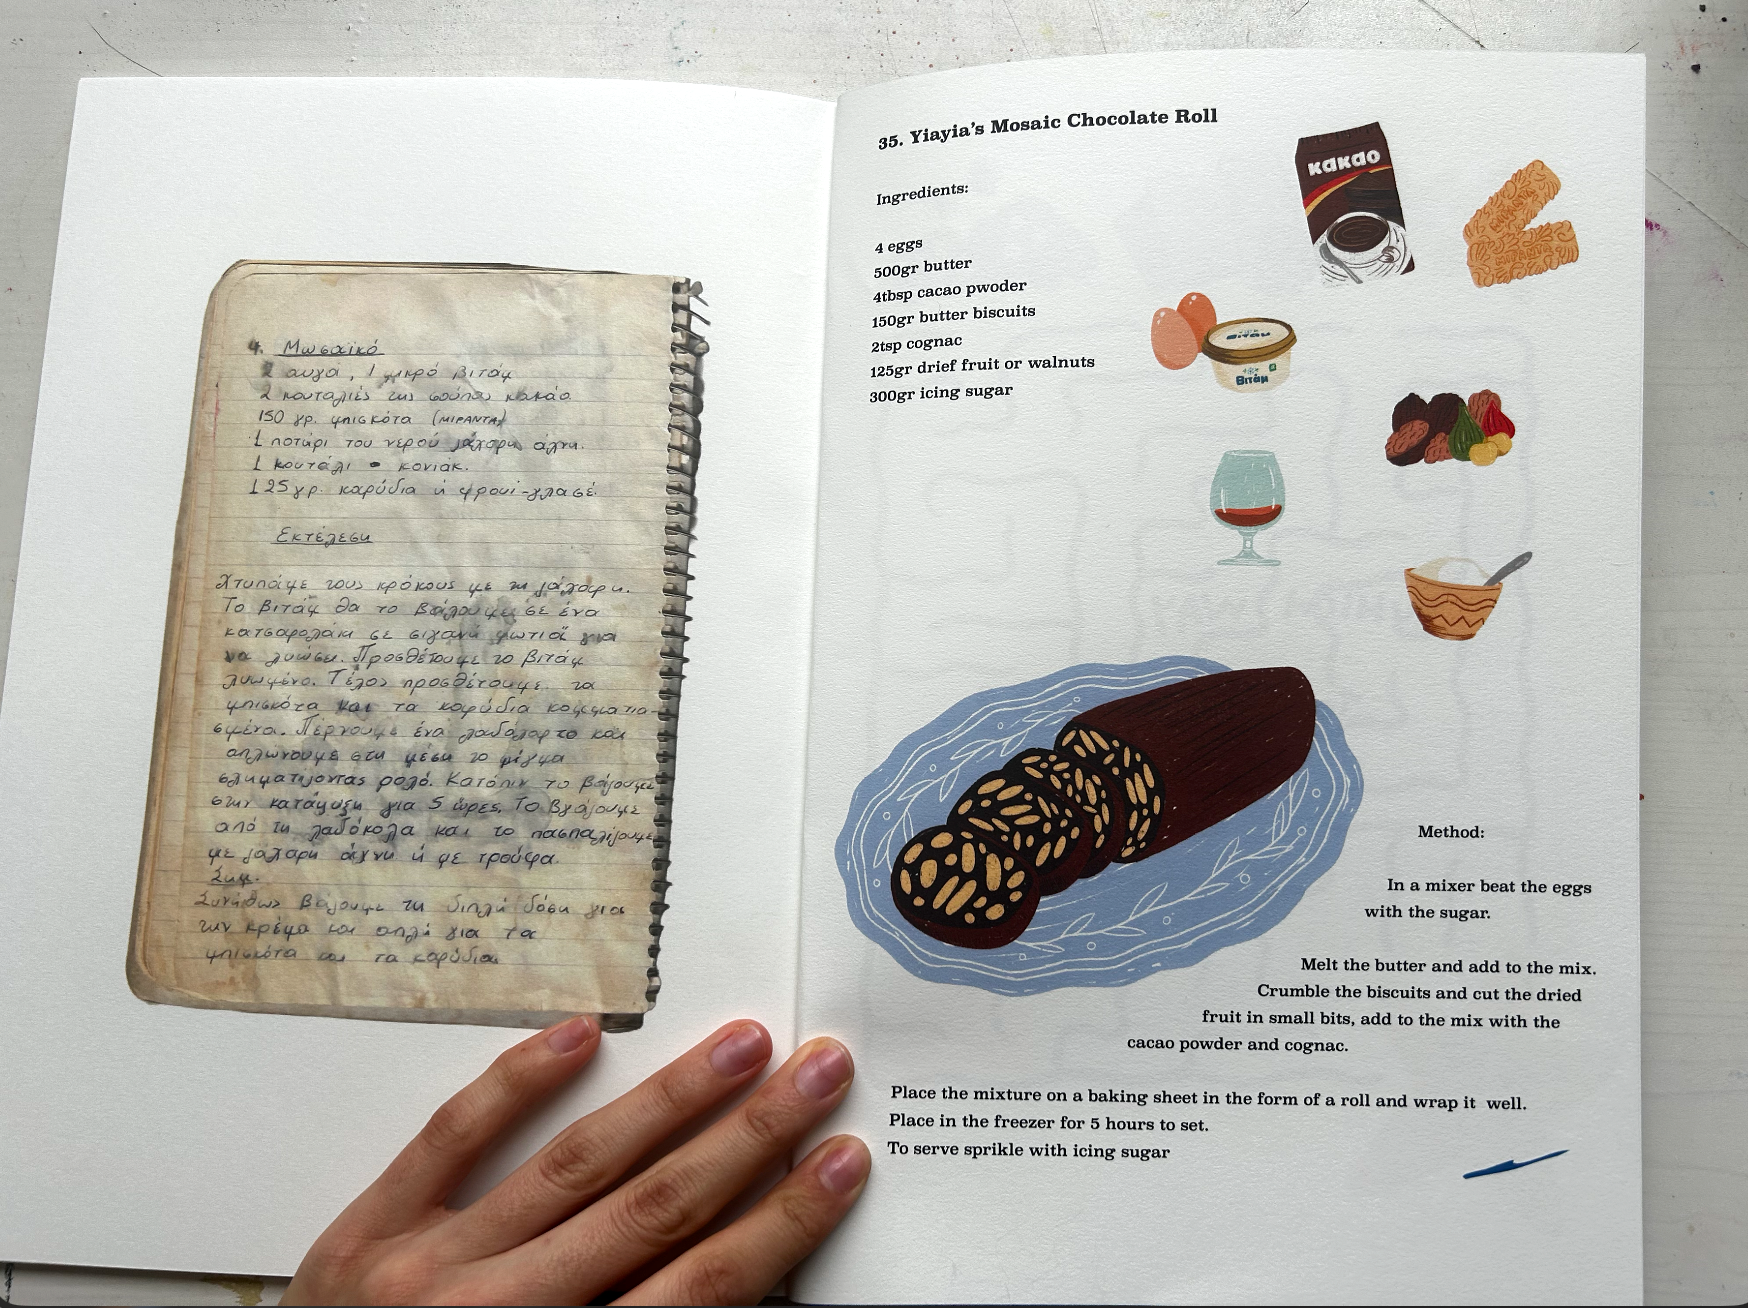 4. Μωσαϊκό
2 αυγα, 1 μικρό βιτάμ
2 κουταλιές της σούπας κακάο
150 γρ. μπισκότα (ΜΙΡΑΝΤΑ)
1 ποτήρι του νερού ζάχαρη άχνη.
1 κουτάλι κονιάκ.
125 γρ. καρύδια ή φρουί-γλασέ.
Εκτέλεση
Χτυπάμε τους κρόκους με τη ζάχαρη.
Το βιτάμ θα το βάλουμε σε ένα
κατσαρολάκι σε σιγανή φωτιά για
να λυώσει. Προσθέτουμε το βιτάμ
λυωμένο. Τέλος προσθέτουμε τα
μπισκότα και τα καρύδια κομματια-
σμένα. Πέρνουμε ένα λαδόχαρτο και
απλώνουμε στη μέση το μίγμα
σχηματίζοντας ρολό. Κατόπιν το βάζουμε
στην κατάψυξη για 5 ώρες. Το βγάζουμε
από τη λαδόκολα και το πασπαλίζουμε
με ζάχαρη άχνη ή με τρούφα.
Σημ.
Συνήθως βάζουμε τη διπλή δόση για
την κρέμα και απλή για τα
μπισκότα και τα καρύδια
35. Yiayia's Mosaic Chocolate Roll
Ingredients:
4 eggs
500gr butter
4tbsp cacao pwoder
150gr butter biscuits
2tsp cognac
125gr drief fruit or walnuts
300gr icing sugar
κακαο
ΜΙΡΑΝΤΑ
ΜΙΡΑΝΤΑ
Βιτάμ
Βιτάμ
Method:
In a mixer beat the eggs
with the sugar.
Melt the butter and add to the mix.
Crumble the biscuits and cut the dried
fruit in small bits, add to the mix with the
cacao powder and cognac.
Place the mixture on a baking sheet in the form of a roll and wrap it well.
Place in the freezer for 5 hours to set.
To serve sprikle with icing sugar